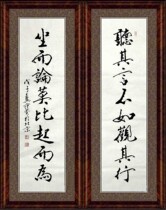 聽其言不如觀其行
坐而論莫比起而為